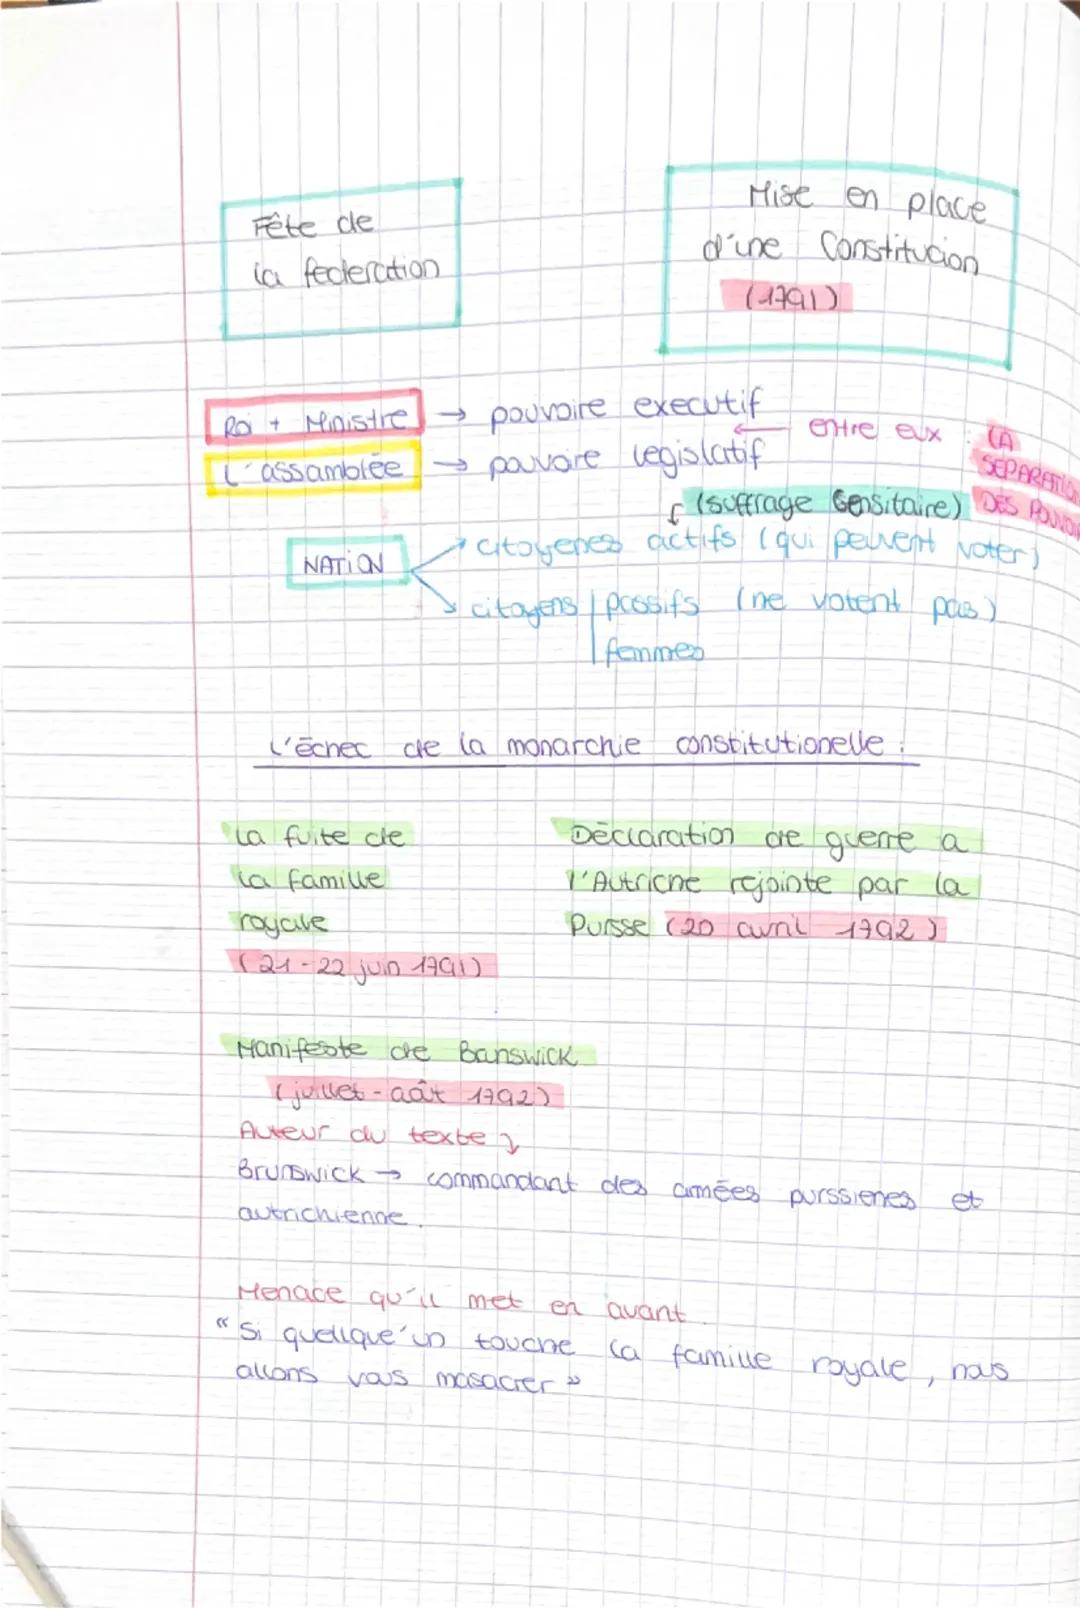 Fête de
la federation
Mise en place
d'une Constitucion
(1791)
Roi + Ministre → pouvoire executif
← entre eux : LA SEPARATION DES POUVOI
L'assamblée → pouvoire legislatif
(suffrage Censitaire)
NATION
citoyenes actifs (qui peuvent voter)
citoyens passifs (ne votent pas)
femmes
L'échec de la monarchie constitutionelle :
La fuite de
la famille
royale
(21-22 juin 1791)
Déclaration de guerre a
l'Autriche rejointe par la
Pursse (20 avril 1792)
Manifeste de Banswick
(juillet-août 1792)
Auteur du texte
Brunswick → commandant des armées purssienes et
autrichienne.
Menace qu'il met en avant.
"Si quellque'un touche la famille royale, nous
allons vous masacrer"